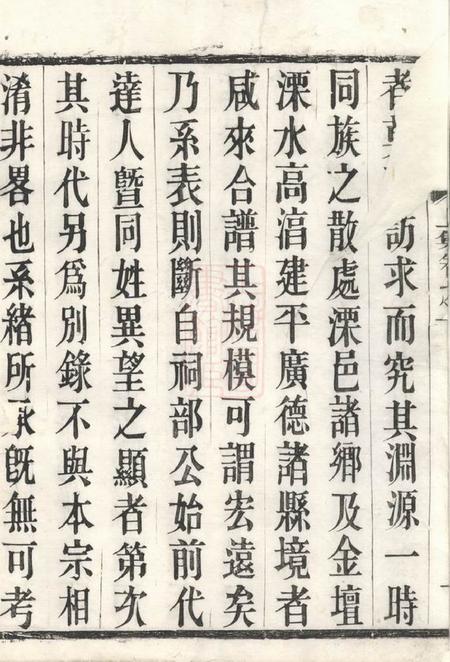 者訪求而究其淵源一時
同族之散處溧邑諸鄉及金壇
溧水高湻建平廣德諸縣境者
咸來合譜其規模可謂宏遠矣
乃系表則斷自祠部公始前代
達人曁同姓異望之顯者第次
其時代另爲別錄不與本宗相
淆非畧也系緒所承旣無可考